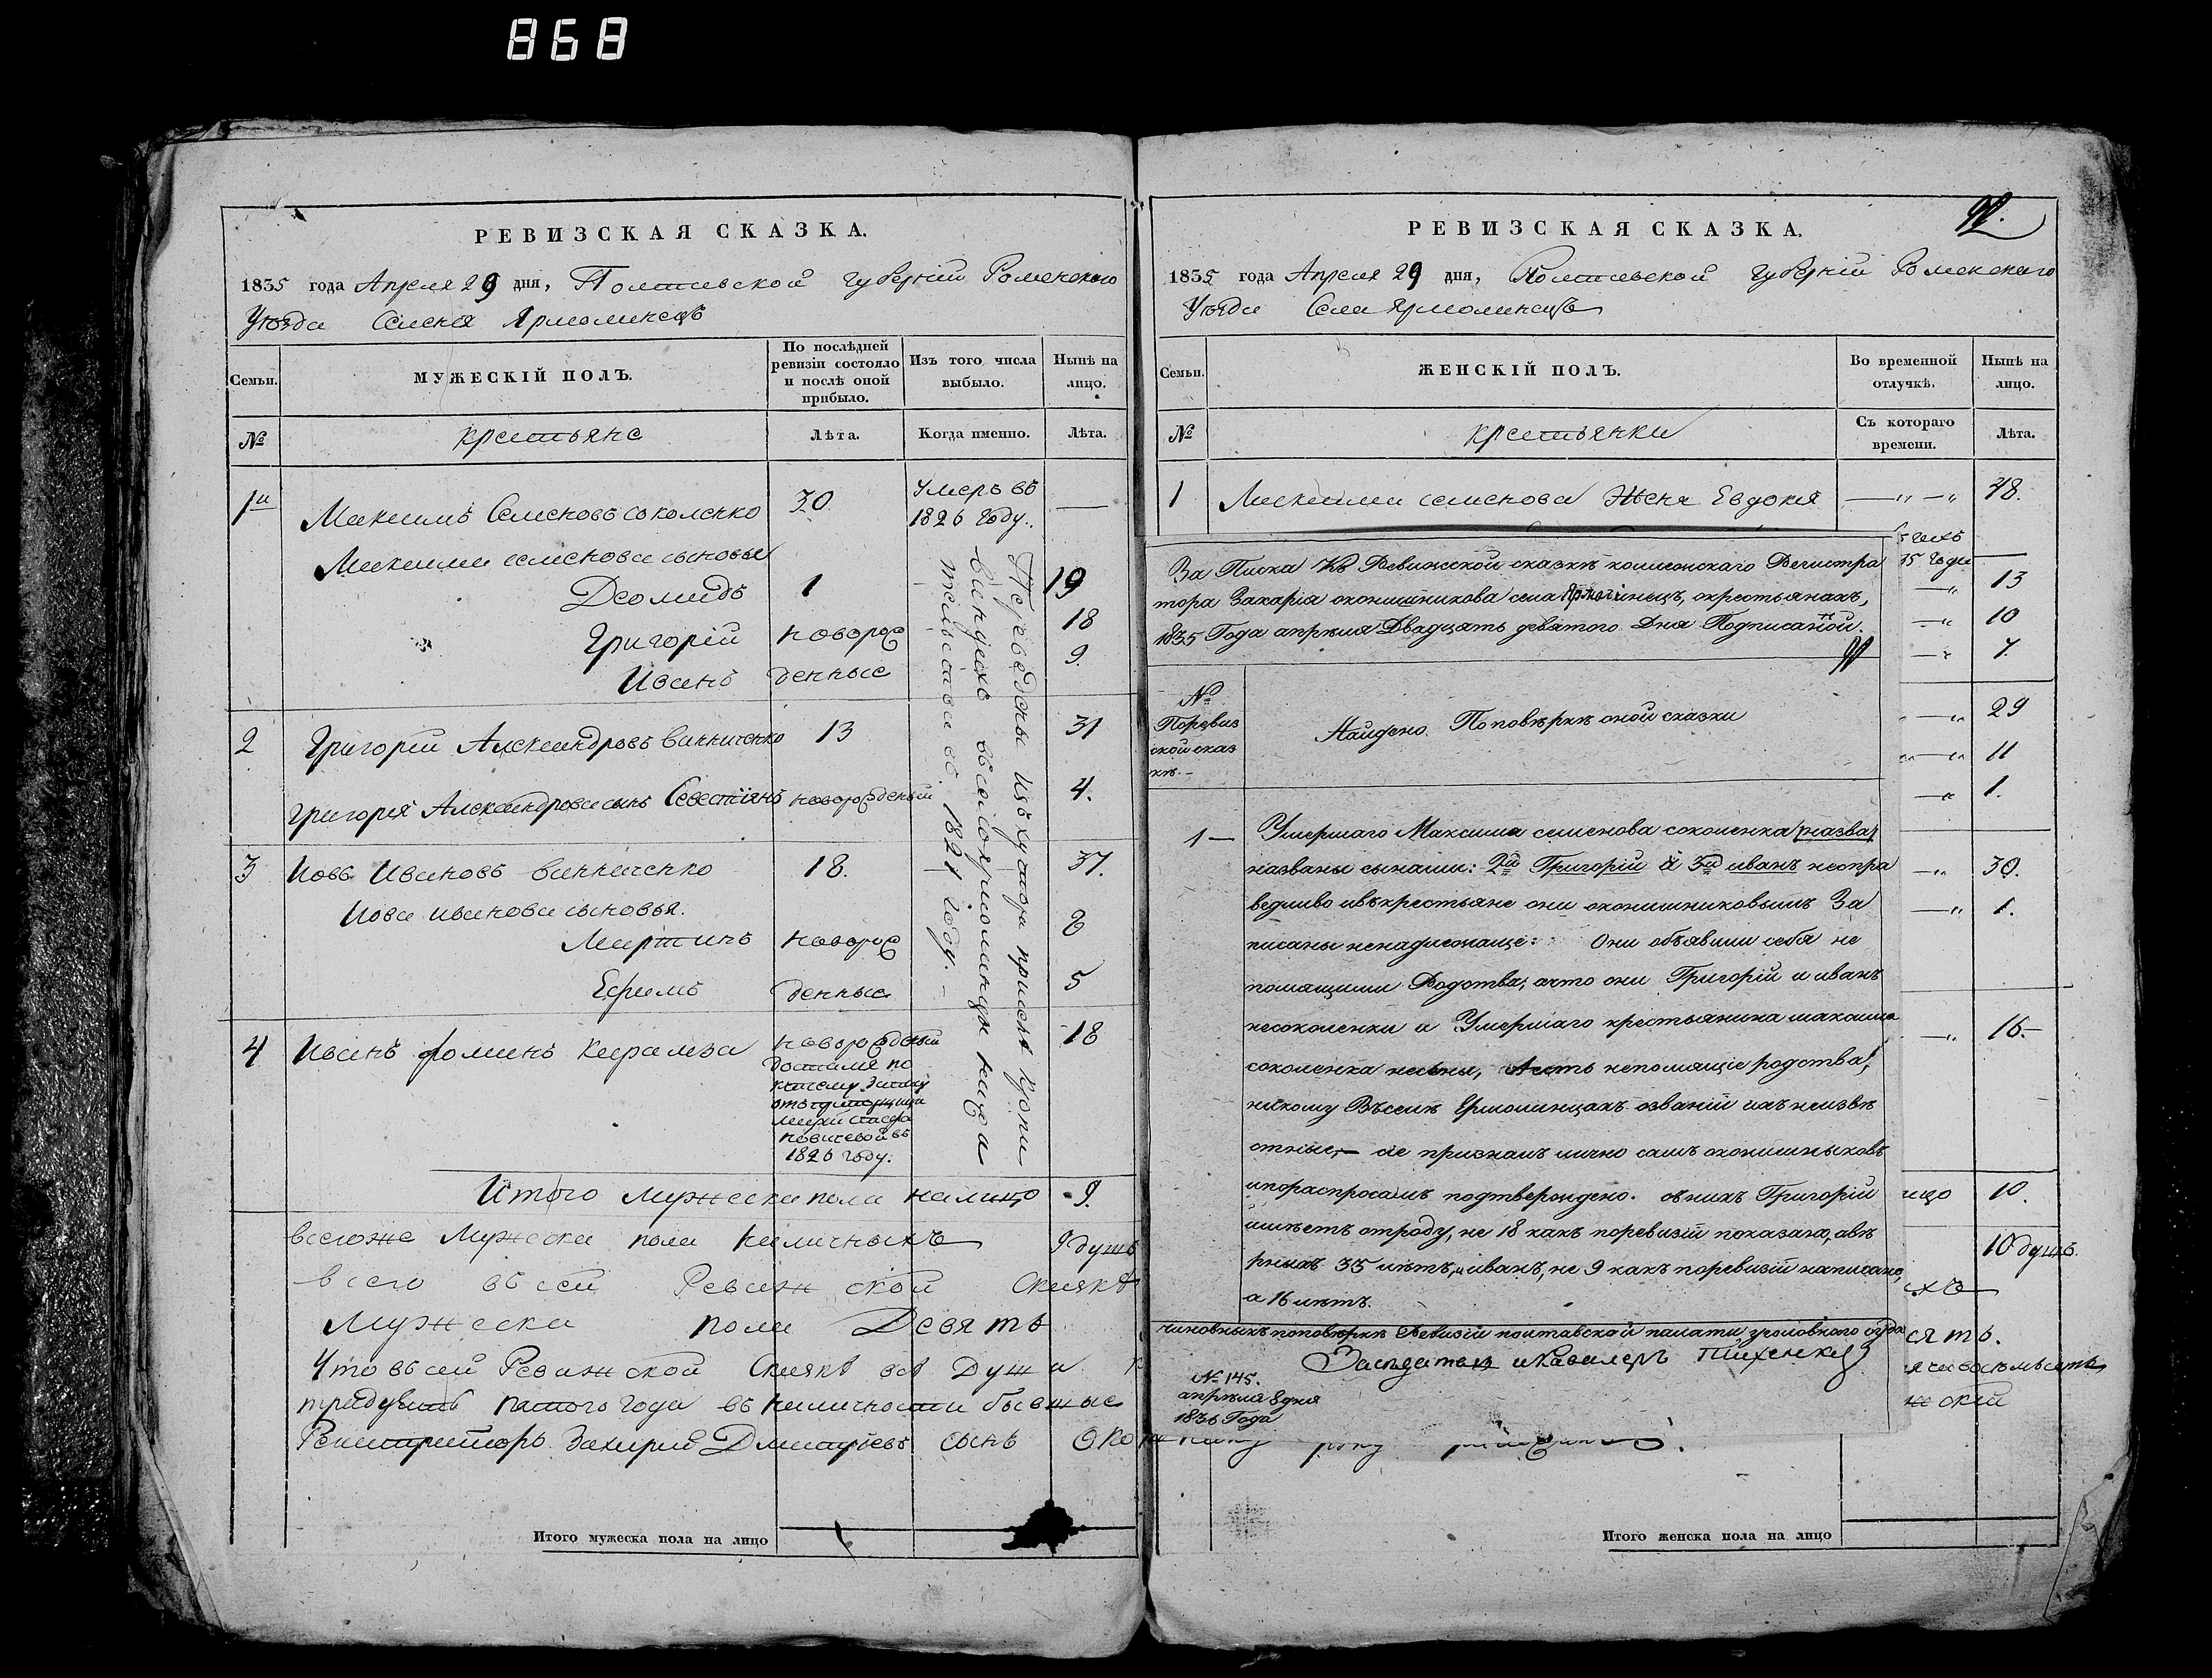 868
РЕВИЗСКАЯ СКАЗКА.
1835 года Апреля 29 дня, Полтавской губерніи Роменского
Уѣзда Селенія Ярмолинецъ
Семьи.
МУЖЕСКІЙ ПОЛЪ.
По послѣдней ревизіи состояло и послѣ оной прибыло.
Изъ того числа выбыло.
Нынѣ на лицо.
№
крестьяне
Лѣта.
Когда именно.
Лѣта.
1й Максимъ Семеновъ соколенко 30. Умеръ въ 1826 году.. —
Максима семенова сыновья
Деомидъ 1 19
Григорій новорож 18
Иванъ денные 9.
2 Григорій Александровъ винниченко 13 31
Григорія Александрова сынъ Севестіянъ новорожденый 4.
3 Іовъ Ивановъ винниченко 18. 37.
Іова иванова сыновья.
Мартинъ новорож 8
Ефимъ денные 5
4 Иванъ фоминъ 18
новорожденый
достался по
отъ помещици
1826 году.
Переведены изъ хутора при
въ село ярмолинцы
въ 1821 году.
Итого мужеска пола налицо 9.
всегоже Мужеска пола наличныхъ 9 душъ
всего въ сей Ревижской Скаскѣ
Мужеска пола Девять
Что въ сей Ревижской Скаскѣ всѣ Души к
тридцать пятого года въ наличности бывшые
Регистраторъ Захарий Дмитріевъ сынъ
Итого мужеска пола на лицо
92.
РЕВИЗСКАЯ СКАЗКА.
1835 года Апреля 29 дня, Полтавской губерніи Роменского
Уѣзда Села Ярмолинецъ
Семьи.
ЖЕНСКІЙ ПОЛЪ.
Во временной отлучкѣ.
Нынѣ на лицо.
№
крестьянки
Съ котораго времени.
Лѣта.
1 Максима семенова Жена Евдокія —„—„ 48.
13
10
7.
29
11
1.
30.
1.
16.-
10.
10 душъ.
За Писка Къ Ревижской сказкѣ колежскаго Регистра
тора Захарія оконишникова села Ярмолинецъ, окрестьянахъ,
1835 Года апрѣля Двадцять девятого Дня Подписаной
№
Поревиз
ской сказ
кѣ.-
Найдено Поповѣркѣ оной сказки
1— Умершаго Максима семенова соколенка
названы сынами: 2й Григорій и 3й иванъ неспра
ведливо ивъкрестьяне они оконишниковымъ За
писаны ненадлежаще: Они объявили себя не
помящими Родства; ачто они Григорій и иванъ
несоколенки и Умершаго крестьянина максима
соколенка несыны, Аесть непомящіе родства,
никому Въселѣ Ермолинцахъ озваніи ихъ неизвѣ
стные,— сіе призналъ лично самъ оконишныковъ
ипораспросамъ подтверждено. изнихъ Григорій
имѣетъ отроду, не 18 какъ поревизій показано, авѣ
рныхъ 35 лѣтъ, иванъ, не 9 какъ поревизій написано,
а 16 лѣтъ.
чиновныкъ поповѣркѣ Ревизій полтавской палаты уголовного суда
Засѣдатель икавалеръ
№ 145.
апрѣля 8 дня
1836 Года
руку приложилъ.
Итого женска пола на лицо